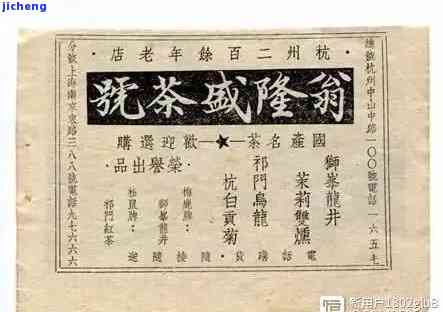 jicheng
杭·州·二·百·餘·年·老·店
翁隆盛茶號
國產名茶—★—歡迎選購
獅峯龍井
茉莉雙燻
祁門烏龍
杭白貢菊
榮譽出品：
梅鹿牌：
獅峯龍井
松鼠牌：
祁門紅茶
電話購貨·隨接隨送
總號杭州中山中路一〇〇號電話一六五七
分號上海南京東路三八八號電話九七六六六